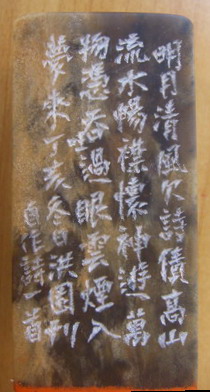 明月清風欠詩債高山
流水暢襟懷神遊萬
物憑吞過眼雲煙入
夢來丁亥冬日洪園刊
自作詩一首